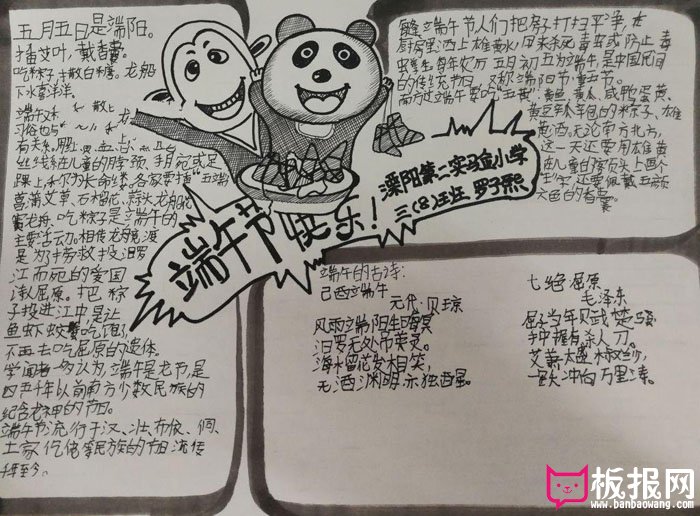 五月五日是端阳。
插艾叶,戴香囊。
吃粽子,撒白糖。龙船
下水喜洋洋。
端午又
习俗也与
有关。
丝线在儿童的脖颈、手腕或足
踝上,称为长命缕。各家要插"五端
喜满艾草、石榴花、蒜头龙船花
赛龙舟、吃粽子是端午节的
主要活动。相传龙舟竞渡
是为捞救投汨罗
江而死的爱国
诗人屈原。把粽
子投进江中是让
鱼虾蚊蟹吃饱了
不再去吃屈原的遗体。
学闻者一多认为,端午是龙节,是
四五千年以前南方少数民族的
纪念龙神的节日。
端午节流行于汉、壮、布依、侗、
土家、仡佬等民族的节日流传
年至今。
端午节人们把房子打扫干净,在
厨房里洒上雄黄水,用来杀毒虫或防止毒
虫孳生。每年农历五月初五为端午,是中国民间
的传统节日,又称端阳节、重五节。
南方过端午要吃"五黄":黄鱼、黄瓜、咸鸭蛋黄、
黄豆瓣包的粽子、雄
黄酒。无论南方北方,
这一天还要用雄黄
在儿童的额头上画个
王字,还要佩戴五颜
六色的香囊。
端午节快乐!
溧阳第二实验小学
三(8)班 罗子熙
端午的古诗:
己酉端午
元代·贝琼
风雨端阳生晦冥
汨罗无处吊英灵。
海榴花发相笑,
无酒渊明亦独醒。
七绝屈原
毛泽东
屈子当年赋楚骚
手中握有杀人刀。
艾萧太盛椒兰少,
一跃冲向万里涛。
板报网
www.banbaowang.com